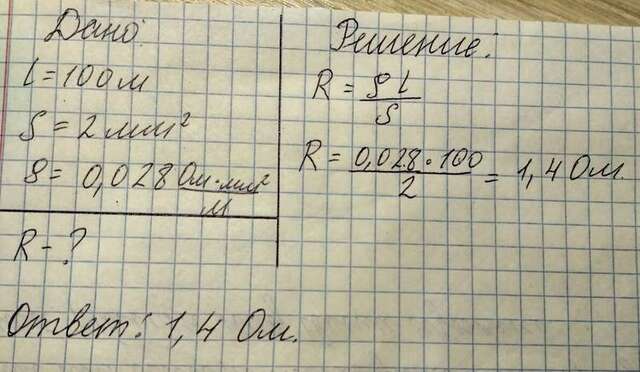 Дано
l = 100 м
S = 2 мм²
ρ = 0,028 Ом·мм²/м
R - ?
Решение:
R = ρ l / S
R = 0,028 · 100 / 2 = 1,4 Ом.
Ответ: 1,4 Ом.